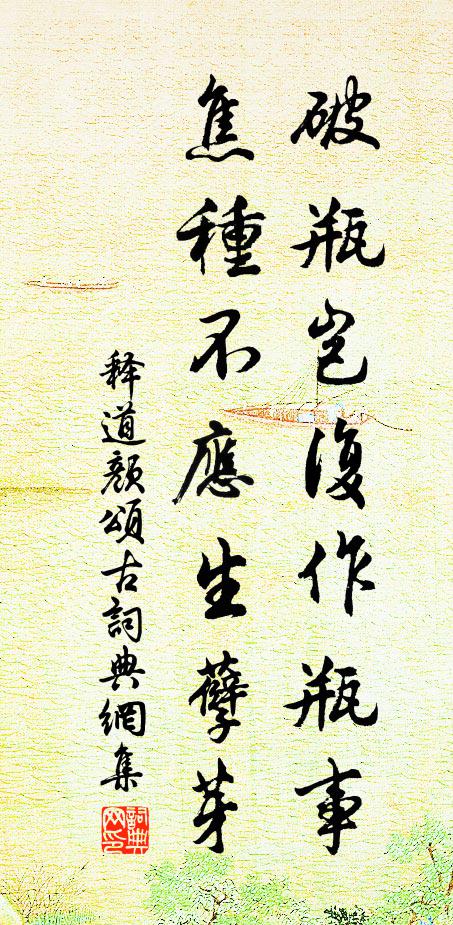 破瓶岂復作瓶事
焦種不應生孽芽
释道顏頌古詞典網集
詞典
网印